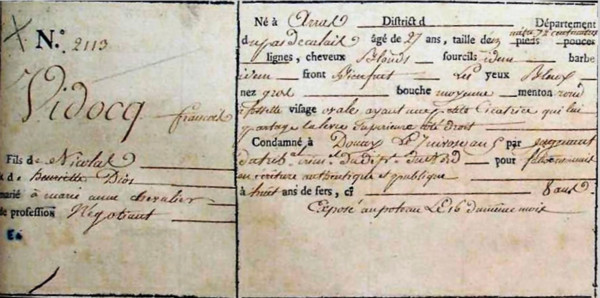 N.° 2113
Vidocq
françois
Fils de Nicolas
& de henriette Dion
marié à marie anne chevalier
de profession Négotiant
Né à Arras District d Département
du pas de calais âgé de 27 ans, taille de mètre 72 centimètres pieds pouces
lignes, cheveux Blonds sourcils idem barbe
idem front yeux Bleux
nez gros bouche moyenne menton rond
à fossette visage ovale ayant une petite Cicatrice qui lui
partage la levre Supérieure côté droit
Condamné à Douay Le 7 nivose an 5 par jugement
du trib. crim. du dépt. du Nord pour faux commis
en écriture authentique et publique
à huit ans de fers, ci 8 ans
Exposé au poteau Le 16 du même mois